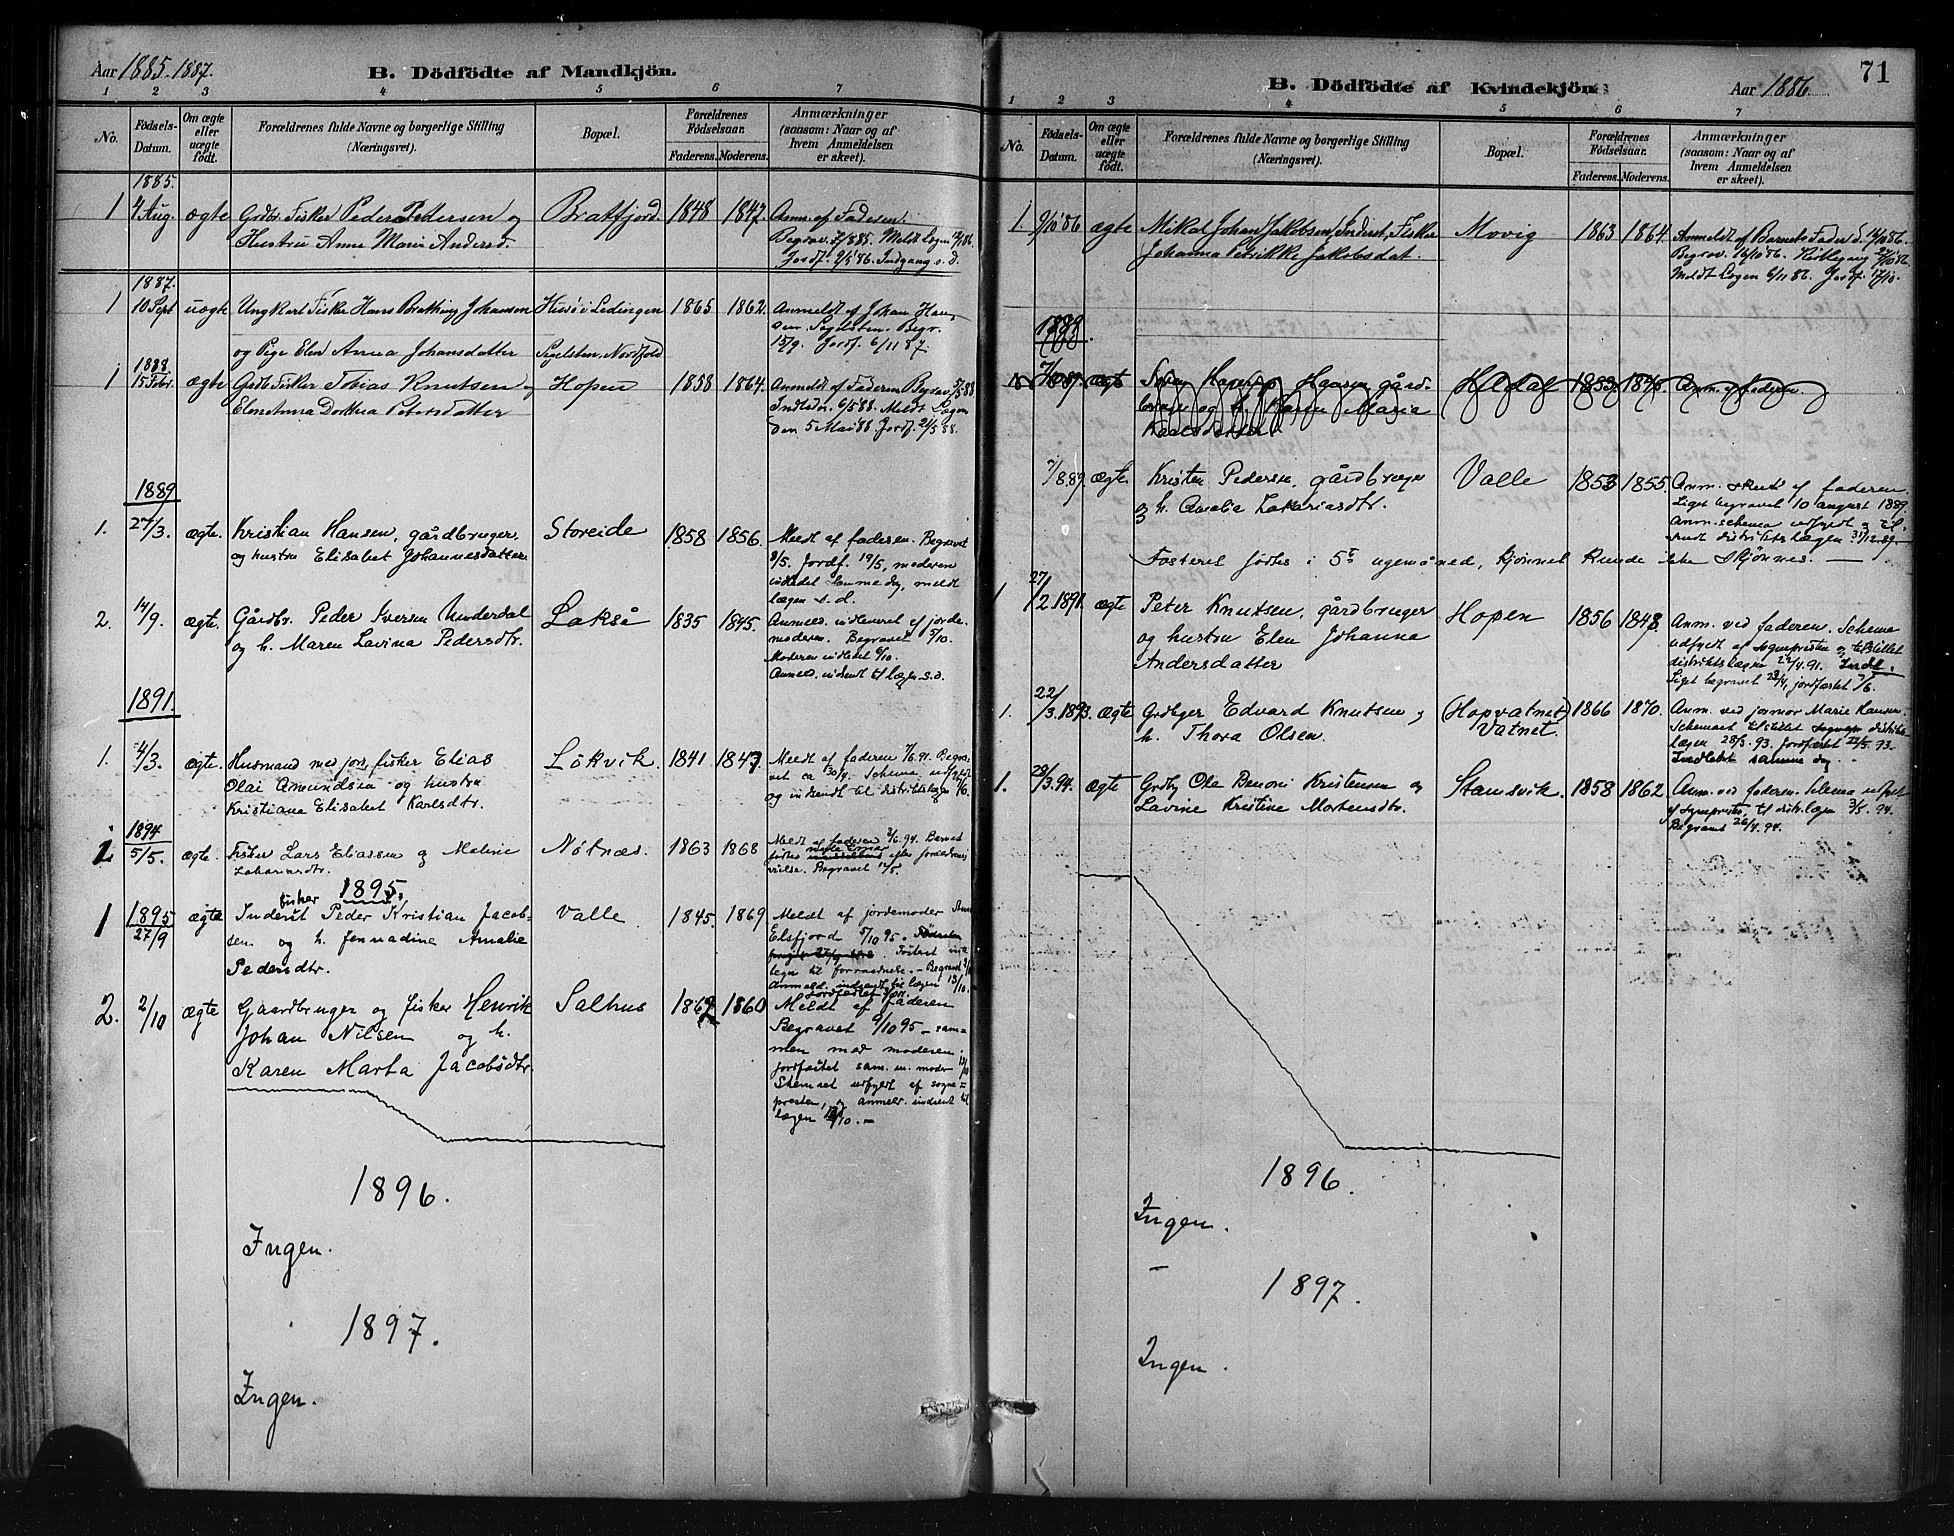 Aar 1885. 1887.
B. Dödfödte af Mandkjön.
1 2 3 4 5 6 7
No.
Födsels-Datum.
Om ægte eller uægte født.
Forældrenes fulde Navne og borgerlige Stilling (Næringsvei).
Bopæl.
Forældrenes Födselsaar.
Faderens. Moderens.
Anmærkninger (saasom: Naar og af hvem Anmeldelsen er skeet).
1885.
1 4 Aug. ægte Grdbr. Fisker Peder Pedersen og Bratfjord 1848 1847. Anm. af Faderen.
Hustru Anne Marie Andersd.
Jordf. 9/5 86. Indgang s. d.
1887.
1 10 Sept uægte Ungkarl Fisker Hans Brakking Johansen Husö i Lödingen 1865 1862. Anmeldt af Johan Han-
sen Segelsten. Begr.
15/9. Jordf. 6/11 87.
og Pige Elen Anna Johansdatter Segelsten, Nordfold
1888.
1 15 Febr. ægte Grdb. Fisker Tobias Knutsen og Hopen 1858 1864. Anmeldt af Faderen
Elen Anna Dorthea Petersdatter Indledn. 6/5 88. Meldt Lægen
den 5 Mai 88. Jordf. 21/5 88.
1889
1. 27/3. ægte. Kristian Hansen, gårdbruger, Storeide 1858 1856. Meldt af faderen. Begravet
og hustru Elisabet Johannesdatter. Jordf. 19/5, moderen
indledet samme dag, meldt
lægen s. d.
2. 14/9. ægte. Gårdbr. Peder Iversen Underdal Lakså 1835 1845. Anmeld. indleveret af jorde-
og h. Maren Lavina Pedersdtr. moderen. Begravet 5/10.
Moderen indledet 6/10.
Anmeld. indsendt til lægen s. d.
1891.
1. 4/3. ægte. Husmand med jor, fisker Elias Lökvik. 1841 1847
Olai Amundsen og hustru
Kristiane Elisabet Karlsdtr. og indsendt til distriktslægen
1894
1. 5/5. ægte. Fisker Lars Eliassen og Meline Nötnæs. 1863 1868 Meldt af faderen 3/6. 94. Barnet
Zakariasdtr. Begravet 12/5.
1895.
1 1895 27/9 ægte Inderst fisker Peder Kristian Jacob- Valle 1845. 1869 Meldt af jordemoder
sen og h. Jennadine Amalie Elsfjord 5/10 95.
Pedersdtr.
2. 2/10 ægte Gaardbruger og fisker Henrik Salhus 1862 1860 Meldt af faderen
Johan Nilsen og h. Begravet 6/10 95 – sam-
Karen Marta Jacobsdtr. men med moderen.
jordfæstet sam. m. moder
Skemaet udfyldt af sogne-
presten, og anmeld. indsent til
lægen
1896.
Ingen.
1897.
Ingen.
71
B. Dödfödte af Kvindekjön.
Aar 1886
1 2 3 4 5 6 7
No.
Födsels-Datum.
Om ægte eller uægte födt.
Forældrenes fulde Navne og borgerlige Stilling (Næringsvei).
Bopæl.
Forældrenes Födselsaar.
Faderens. Moderens.
Anmærkninger (saasom: Naar og af hvem Anmeldelsen er skeet).
1. 9/10 86 ægte Mikal Johan Jakobsen, Inderst, Fisker Movig 1863 1864. Anmeldt af Barnets Fader d. 14/10 86.
Johanna Petrikke Jakobsdat. Begrav. 16/10 86. Kirkegang 24/10 86.
Meldt Lægen 6/11 86. Jordf. 17/10.
1889.
Hansen gård- Hildal 1853 1848 Anm. af faderen.
bruger og h. Karen Maria
7/8.89. ægte. Kristen Pedersen, gårdbruger Valle 1853 1855. Anm. skeet af faderen.
og h. Amalia Zakariasdtr. Liget begravet 10 august 1889.
Anm.-schema udfyldt og til-
sendt distriktslægen 31/12.89.
Fosteret fødtes i 5te ugemåned, kjönnet kunde ikke skjönnes. —
1 27/2.1891. ægte Peter Knutsen, gårdbruger Hopen 1856 1848. Anm. ved faderen. Schema
og hustru Elen Johanna udfyldt af sognepresten og tilstillet
Andersdatter distriktslægen 22/4.91.
Liget begravet 23/4, jordfæstet 7/6.
1. 22/3.1893. ægte Grdbger Edvard Knutsen og (Hopvatnet) 1866 1870. Anm. ved jormor Marie Hansen.
h. Thora Olsen. Vatnet. Schemaet tilstillet distrikts-
lægen 28/3. 93. Jordfæstet 22/5. 93.
Indledet samme dag.
1. 29/3.94. ægte Grdbg Ole Benoni Kristensen og Stamsvik. 1858 1862. Anm. ved faderen. Schema udfyldt
Lavine Kristine Mortensdtr. af sognepresten, til distr.lægen 3/5. 94.
Begravet 26/4. 94.
1896.
Ingen.
1897.
Ingen.